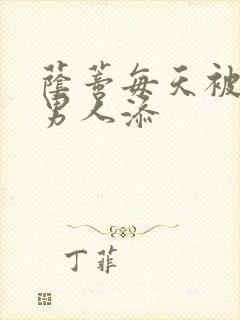 蔭蒂每天被
男人添
丁菲